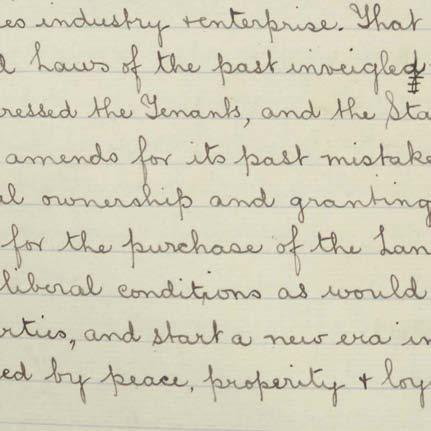 es industry + enterprise. That
d Laws of the past inveigled
ressed the Tenants, and the Sta
amends for its past mistake
al ownership and granting
for the purchase of the Lan
liberal conditions as would
rties, and start a new era in
ed by peace, properity + loy